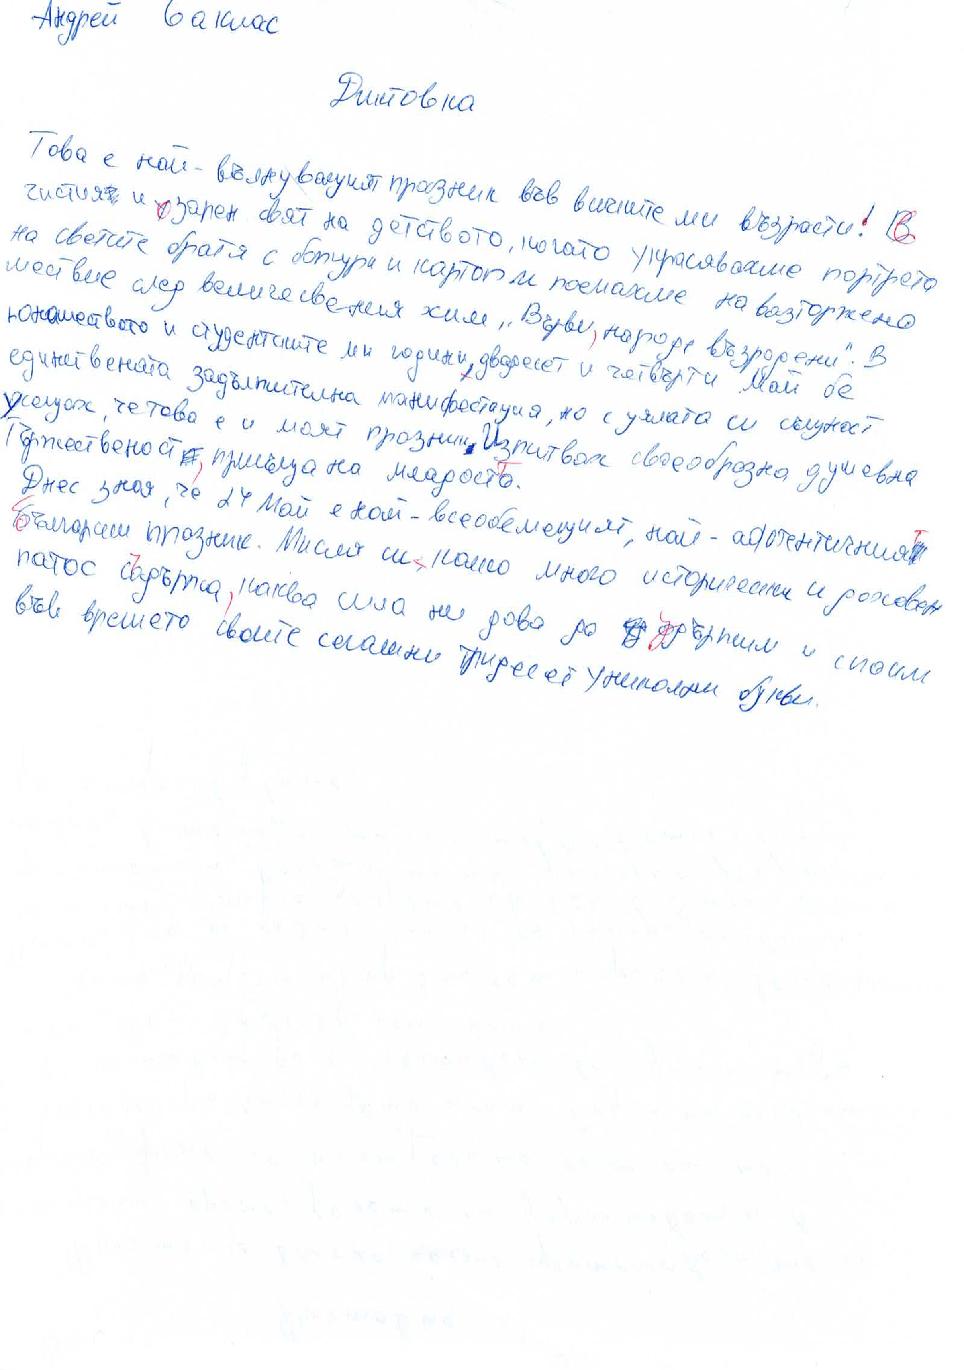 Андрей 6а клас
Диктовка
Това е най-вълнуващият празник във всичките ми възрасти! В
чистия и озарен свят на детството, когато украсявахме портрета
на светите братя с божури и картоп и поемахме на възторжено
шествие след величествения химн „Върви, народе възродени". В
юношеството и студентските ми години, двадесет и четвърти май бе
единствената задължителна манифестация, но с цялата си същност
усещах, че това е и моят празник. Изпитвах своеобразна душевна
тържественост, присъща на младостта.
Днес зная, че 24 май е най-всеобемащият, най-автентичният
български празник. Мисля си, колко много исторически и духовен
патос съдържа, каква сила ни дава да държим и спасим
във времето своите сегашни тридесет уникални букви.